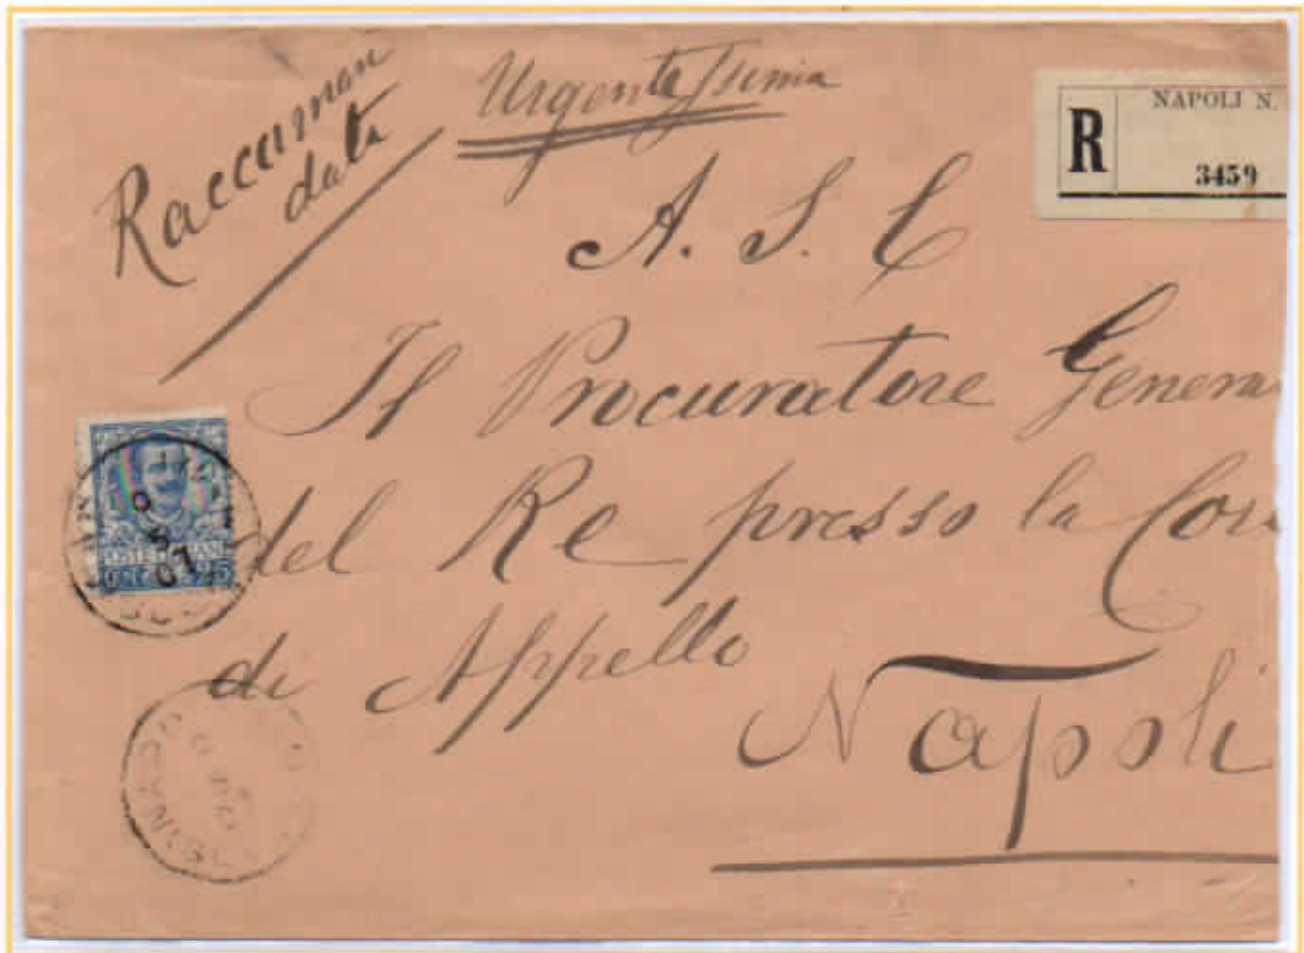 Raccuman
data
Urgentissima
NAPOLI N.
R
3459
A. S. E
Il Procuratore Genera
del Re presso la Cor
di Appello
Napoli
9
5
07
25